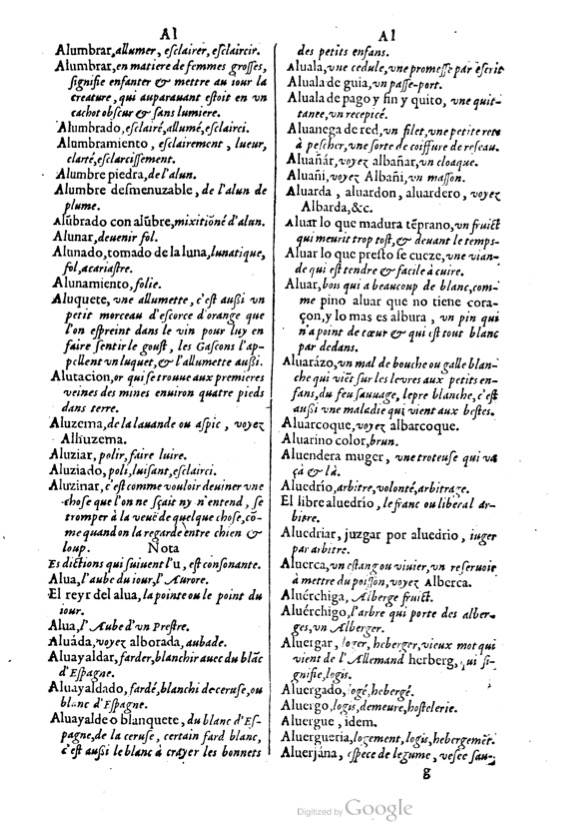 Al
Alumbrar, allumer, esclairer, esclaircir.
Alumbrar, en matiere de femmes grosses,
signifie enfanter & mettre au iour la
creature, qui auparauant estoit en vn
cachot obscur & sans lumiere.
Alumbrado, esclairé, allumé, esclairci.
Alumbramiento, esclairement, lueur,
clarté, esclarcissement.
Alumbre piedra, de l'alun.
Alumbre desmenuzable, de l'alun de
plume.
Alūbrado con alūbre, mixitiōné d'alun.
Alunar, deuenir fol.
Alunado, tomado de la luna, lunatique,
fol, acariastre.
Alunamiento, folie.
Aluquete, vne allumette, c'est aussi vn
petit morceau d'escorce d'orange que
l'on espreint dans le vin pour luy en
faire sentir le goust, les Gascons l'ap-
pellent vn luquet, & l'allumette aussi.
Alutacion, or qui se trouue aux premieres
veines des mines enuiron quatre pieds
dans terre.
Aluzema, de la lauande ou aspic, voyez
Alhuzema.
Aluziar, polir, faire luire.
Aluziado, poli, luisant, esclairci.
Aluzinar, c'est comme vouloir deuiner vne
chose que l'on ne sçait ny n'entend, se
tromper à la veuë de quelque chose, cō-
me quand on la regarde entre chien &
loup. Nota
Es dictions qui suiuent l'u, est consonante.
Alua, l'aube du iour, l'Aurore.
El reyr del alua, la pointe ou le point du
iour.
Alua, l'Aube d'vn Prestre.
Aluáda, voyez alborada, aubade.
Aluayaldar, farder, blanchir auec du blāc
d'Espagne.
Aluayaldado, fardé, blanchi de ceruse, ou
blanc d'Espagne.
Aluayalde o blanquete, du blanc d'Es-
pagne, de la ceruse, certain fard blanc,
c'est aussi le blanc à crayer les bonnets
Al
des petits enfans.
Aluala, vne cedule, vne promesse par escrit
Aluala de guia, vn passe-port.
Aluala de pago y fin y quito, vne quit-
tance, vn recepicé.
Aluanega de red, vn filet, vne petite rets
à pescher, vne sorte de coiffure de reseau.
Aluañár, voyez albañar, vn cloaque.
Aluañi, voyez Albañi, vn masson.
Aluarda, aluardon, aluardero, voyez
Albarda, &c.
Aluar lo que madura tēprano, vn fruict
qui meurit trop tost, & deuant le temps.
Aluar lo que presto se cueze, vne vian-
de qui est tendre & facile à cuire.
Aluar, bois qui a beaucoup de blanc, com-
me pino aluar que no tiene cora-
çon, y lo mas es albura, vn pin qui
n'a point de cœur & qui est tout blanc
par dedans.
Aluarázo, vn mal de bouche ou galle blan-
che qui viēt sur les leures aux petits en-
fans, du feu sauuage, lepre blanche, c'est
aussi vne maladie qui vient aux bestes.
Aluarcoque, voyez albarcoque.
Aluarino color, brun.
Aluendera muger, vne troteuse qui va
çà & là.
Aluedrío, arbitre, volonté, arbitrage.
El libre aluedrio, le franc ou liberal ar-
bitre.
Aluedriar, juzgar por aluedrio, iuger
par arbitre.
Aluerca, vn estang ou viuier, vn reseruoir
à mettre du poisson, voyez Alberca.
Aluérchiga, Alberge fruict.
Aluérchigo, l'arbre qui porte des alber-
ges, vn Alberger.
Aluergar, loger, heberger, vieux mot qui
vient de l'Allemand herberg, qui si-
gnifie, logis.
Aluergado, logé, hebergé.
Aluergo, logis, demeure, hostelerie.
Aluergue, idem.
Aluergueria, logement, logis, hebergemēt.
Aluerjána, espece de legume, vesce sau-
g
Digitized by Google